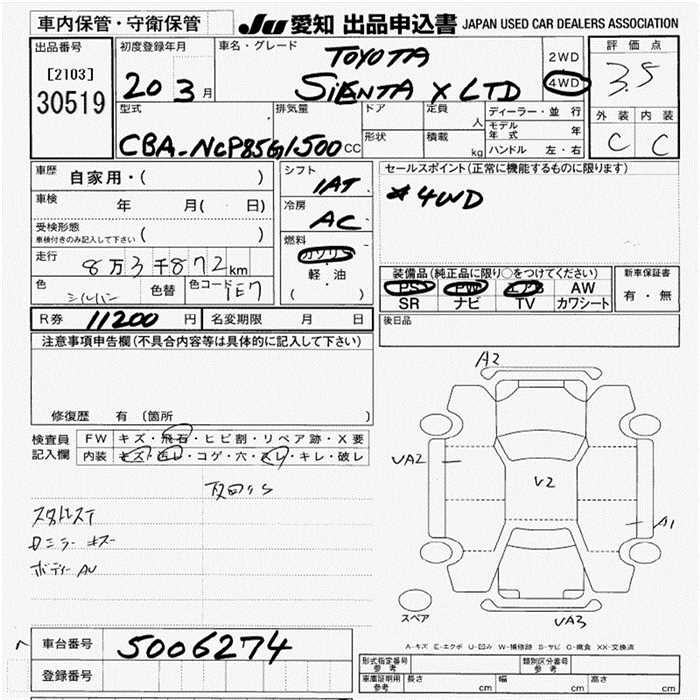 車内保管・守衛保管
JU 愛知 出品申込書 JAPAN USED CAR DEALERS ASSOCIATION
出品番号
[2103]
30519
初度登録年月
20 3 月
車名・グレード
TOYOTA
SiENTA X LTD
2WD
4WD
評価点
3.5
外装 内装
C C
型式
CBA-NCP85G
排気量
1500 CC
ドア
形状
定員
人
積載
kg
ディーラー・並行
モデル年式 年
ハンドル 左・右
車歴
自家用・( )
車検 年 月( 日)
受検形態
車検付きのみ記入して下さい ( )
走行
8万3千872km
色 シルバー 色替 色コード 1E7
シフト
1AT
冷房
AC
燃料
ガソリン
軽・油
( )
セールスポイント(正常に機能するものに限ります)
#4WD
装備品(純正品に限り○をつけてください)
PS PW エアB AW
SR ナビ TV カワシート
新車保証書
有・無
R券 11200 円 名変期限 月 日
後日品
注意事項申告欄(不具合内容等は具体的に記入して下さい)
修復歴 有(箇所 )
検査員
記入欄
FW キズ・飛石・ヒビ割・リペア跡・X要
内装 キズ・汚レ・コゲ・穴・スレ・キレ・破レ
スタトレステ
ボディーAU
A2
UA2
V2
A1
UA3
スペア
A-キズ E-エクボ U-凹み W-補修跡 S-サビ C-腐食 XX-交換済
車台番号 5006274
登録番号
形式指定番号
参考
類別区分番号
参考
車庫証明用
参考
長さ cm 幅 cm 高さ cm